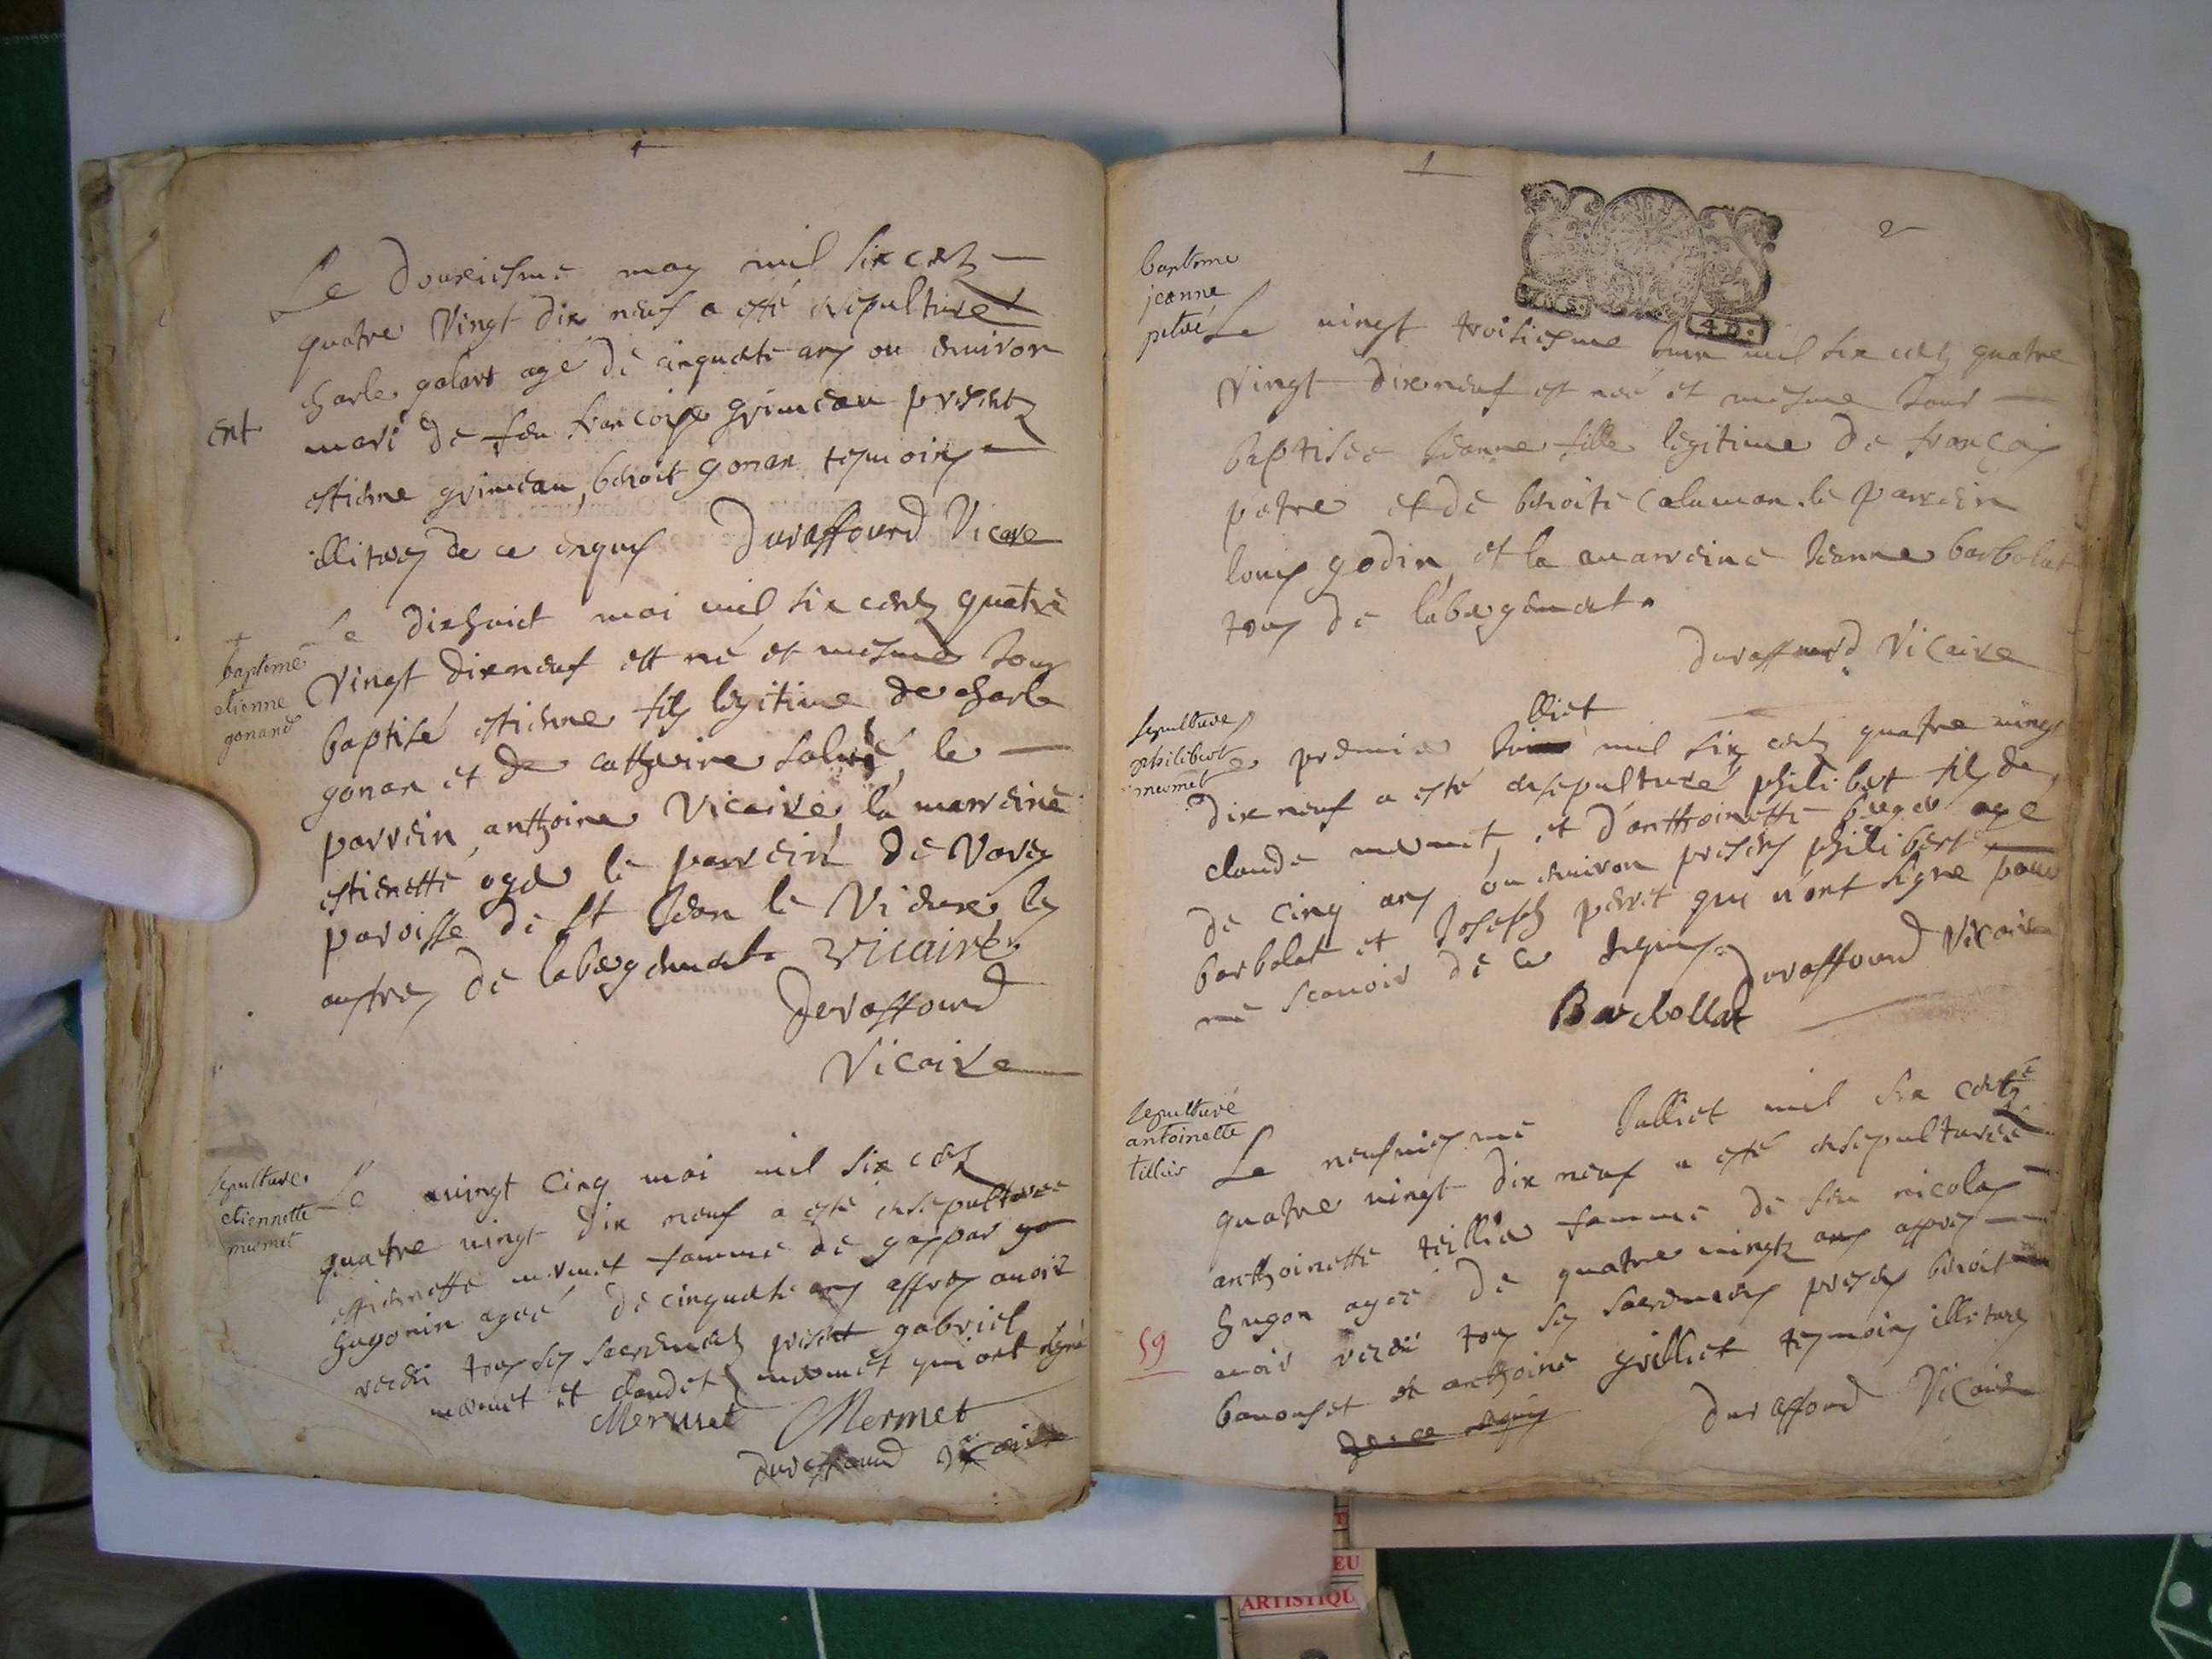 Le douxiesme may mil six centz
quatre Vingt dix neuf a esté ensepulturé
charle galant agé de cinquate ans ou environ
ent
mari de feu francoise grimeau presentz
estienne grimeau, benoit gonan tesmoins
illitres de ce enquis Duraffourd Vicare
bapteme
etienne
gonand
Le dixhuict moi mil six centz quatre
Vingt dixneuf est né et mesme Jour
baptisé estienne fils legitime de charle
gonan et de catherine le
parrein anthoine Vicaire la marreine
estienette oger le parrein de Varey
paroisse de st Jean le Vieux les
autres de labergemate Vicaire
Duraffourd
Vicaire
sepulture
etiennette
mermet
Le vingt cinq moi mil six centz
quatre vingt dix neuf a esté ensepulturee
estiennette mermet famme de gaspar go
hugonin ageé de cinquate ans affres avoir
receu tous ses sacrementz present gabriel
mermet et claude mermet qui ont signé
Mermet Mermet
duraffourd vicaire
2
4 D.
baptome
jeanne
petré
Le vingt troisiesme Juin mil six centz quatre
Vingt dixneuf est neé et mesme Jour
baptisee Jeanne fille legitime de françois
petre et de benoite calaman le parrein
louis godin et la marreine Jeanne barbolat
tous de labergemat.
Duraffourd Vicaire
sepulture
philibert
mermet
lliet
Le premier Jui mil six centz quatre vingt
dix neuf a esté ensepulturé philibert fils de
claude mermet et d'anthoinette berger agé
de cinq ans ou environ presens philibert
barbolat et Joseph perret qui n'ont signe pour
ne scavoir de ce enquis. Duraffourd Vicaire
Barbollat
sepulturé
antoinette
Le neufviesme Julliet mil six centz
quatre vingt dix neuf a esté ensepulturée
anthoinette teillier famme de feu nicolas
hugon ageé de quatre vingtz ans appres
avoir receu tous ses sacremens presens benoit
59
et anthoine grilliet tesmoins illitres
de ce enquis Duraffourd Vicaire
EU
ARTISTIQU